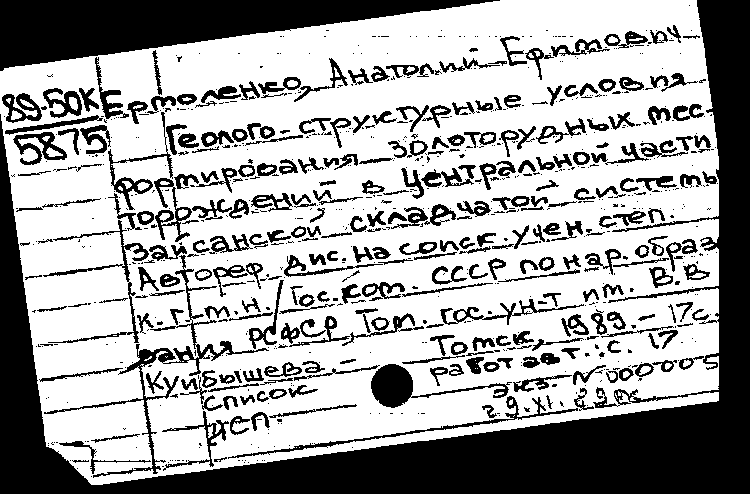 89-50К
5875
Ермоленко, Анатолий Ефимович
Геолого-структурные условия
формирования золоторудных мес-
торождений в Центральной части
Зайсанской складчатой системы
Автореф. дис. на соиск. учен. степ.
к. г.-м. н. Гос. ком. СССР по нар. образо
вания РСФСР, Том. гос. ун-т им. В.В
Куйбышева. - Томск, 1989. - 17с.
список работ авт.: с. 17
ДСП. экз. N 000005
29.XI.89